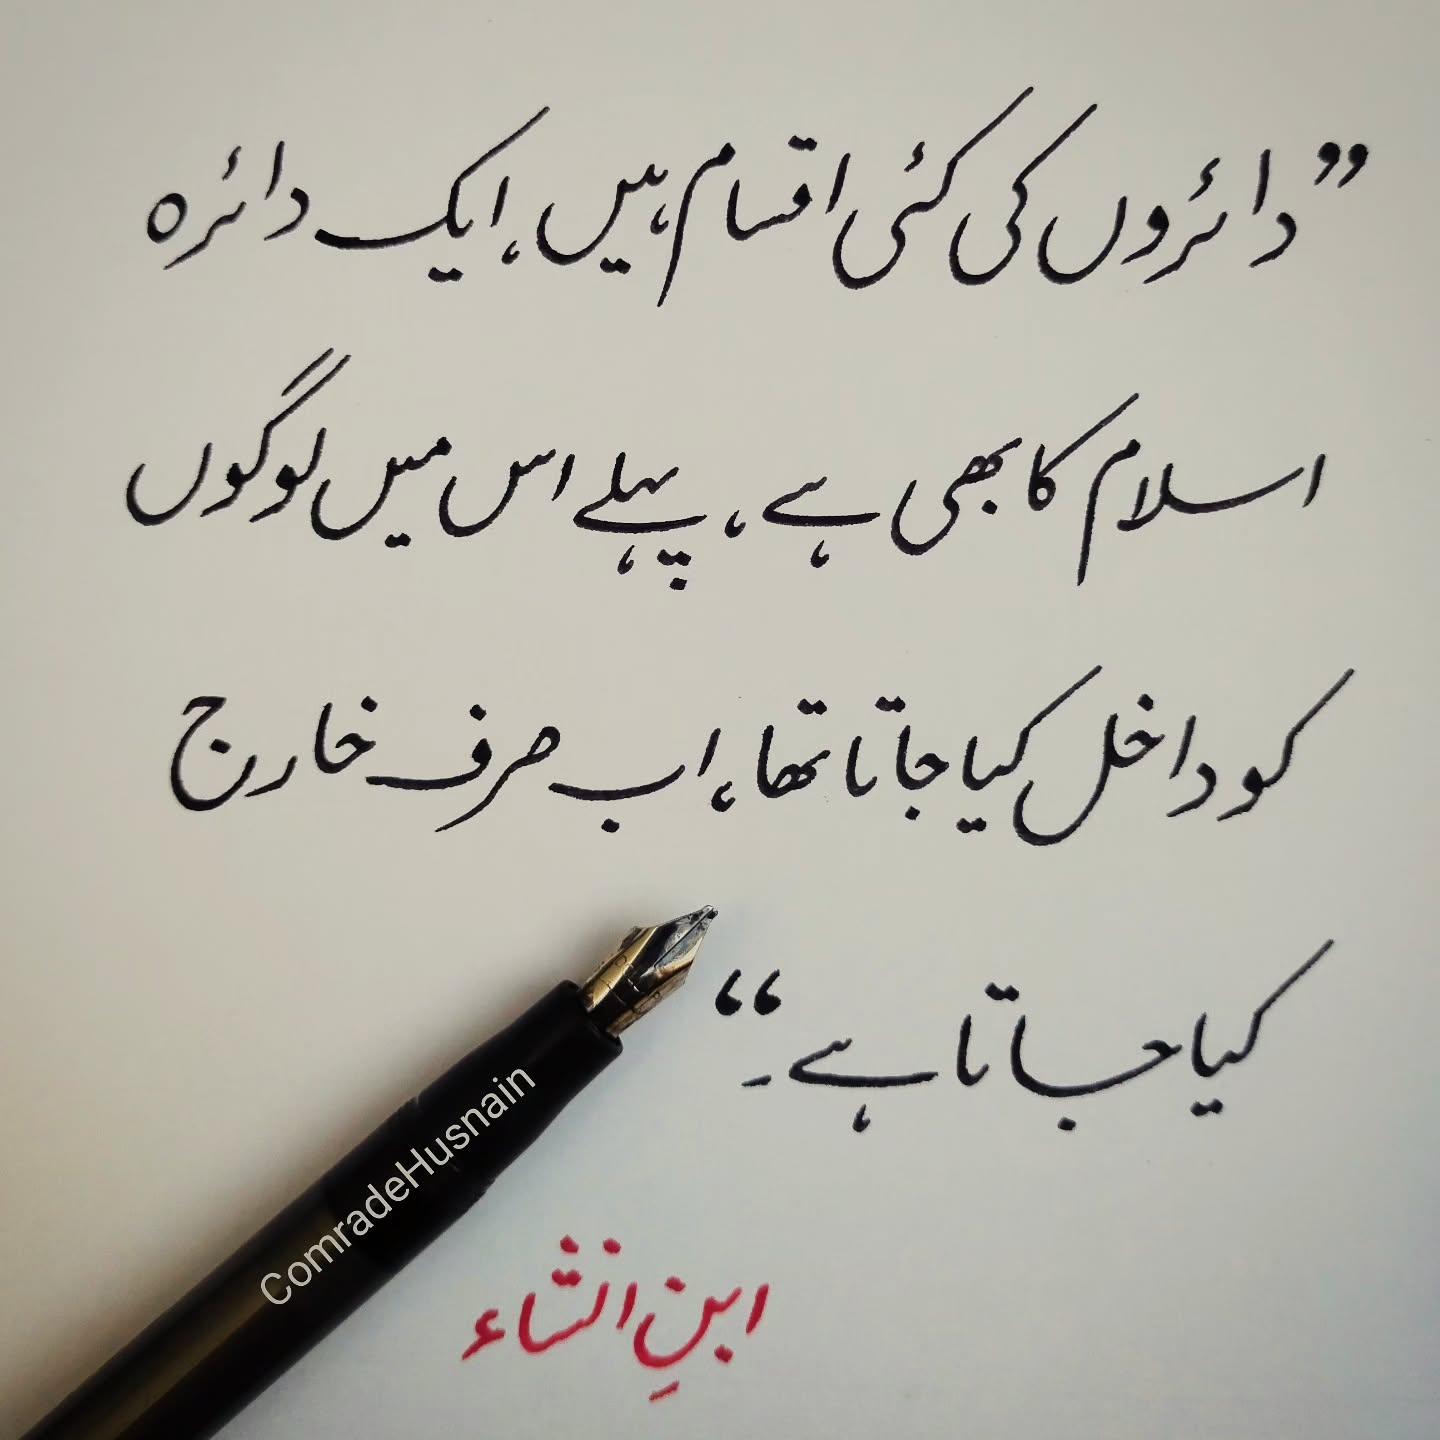 ”دائروں کی کئی اقسام ہیں، ایک دائرہ
اسلام کا بھی ہے، پہلے اس میں لوگوں
کو داخل کیا جاتا تھا، اب صرف خارج
کیا جاتا ہے۔“
ComradeHusnain
ابنِ انشاء